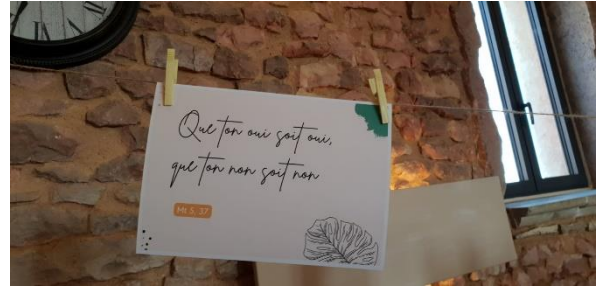 Que ton oui soit oui,
que ton non soit non
Mt 5, 37